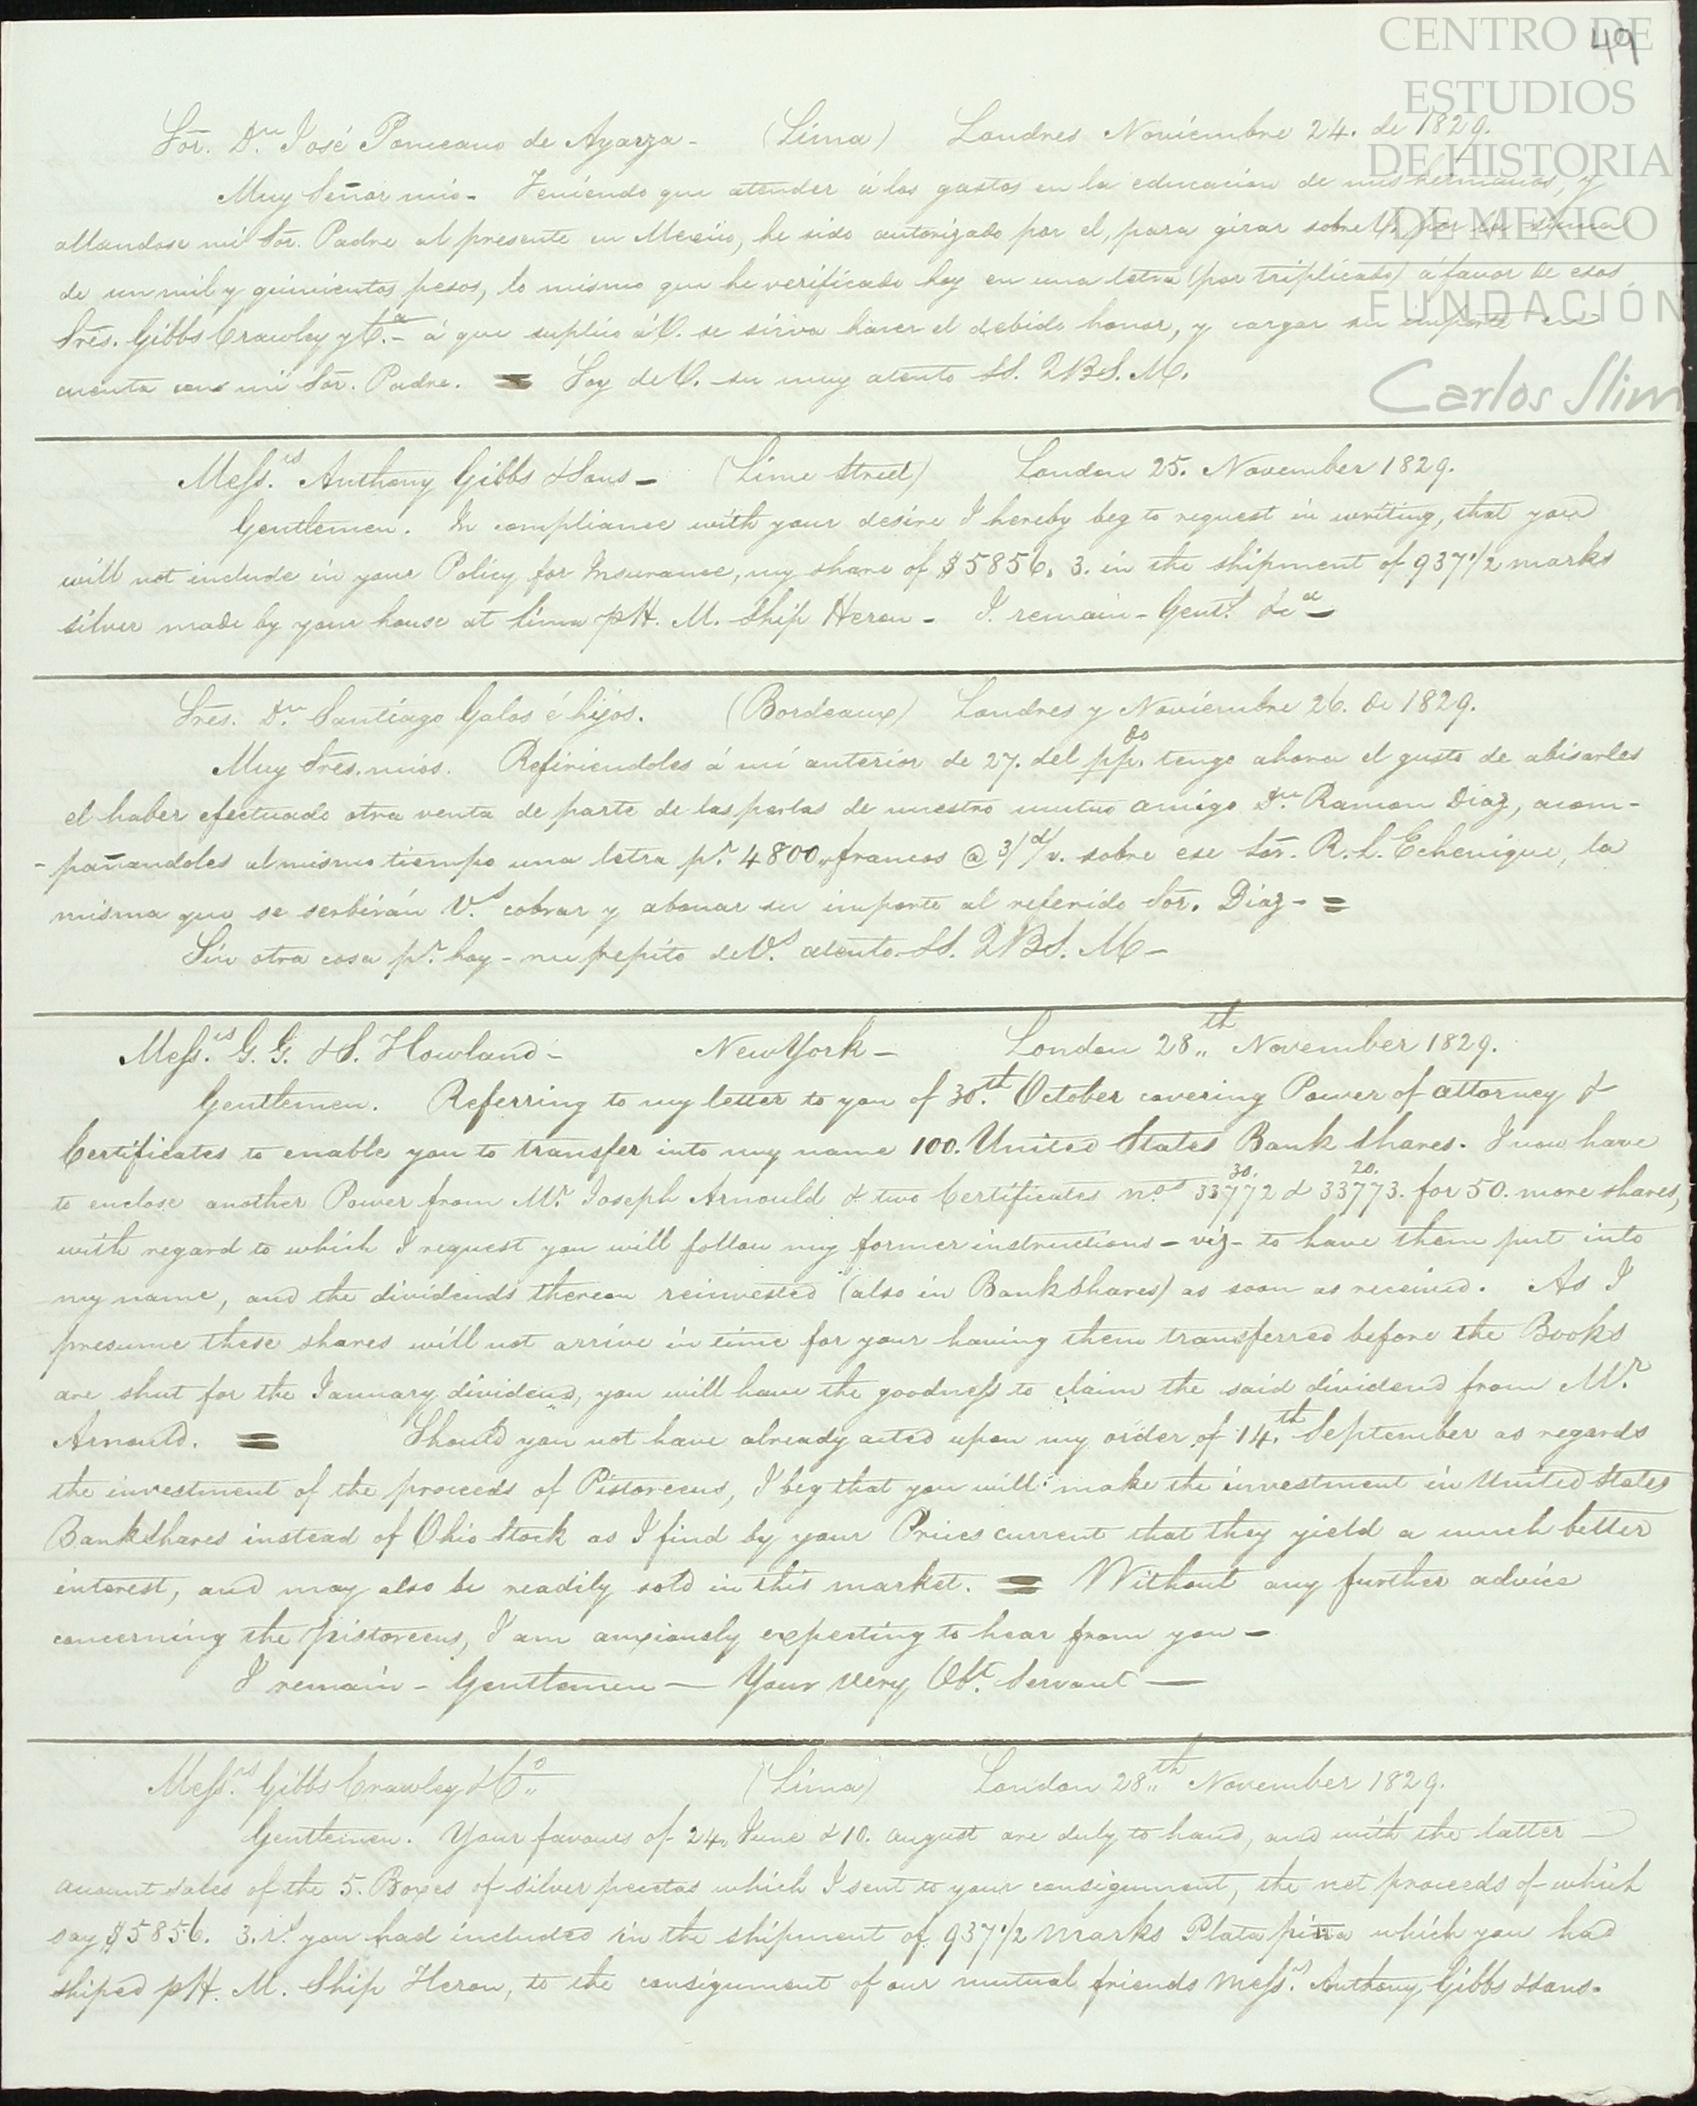 49
CENTRO DE
ESTUDIOS
DE HISTORIA
DE MEXICO
FUNDACIÓN
Carlos Slim
Sor. Dn. José Ponceano de Ayarza - (Lima) Londres Noviembre 24. de 1829.
Muy Señor mio - Teniendo que atender á los gastos en la educacion de mis hermanos, y
allandose mi Sor. Padre al presente en Mexico, he sido autorizado por el, para girar sobre V. por la suma
de un mil y quinientos pesos, lo mismo que he verificado hoy en una letra (por triplicado) á favor de esos
Sres. Gibbs Crawley y Ca. - á que suplico á V. se sirva hacer el debido honor, y cargar su importe en
cuenta con mi Sor. Padre. = Soy de V. su muy atento SS. QBS. M.
Messrs. Anthony Gibbs & Sons - (Lime Street) London 25. November 1829.
Gentlemen. In compliance with your desire I hereby beg to request in writing, that you
will not include in your Policy for Insurance, my share of $5856. 3. in the shipment of 937 1/2 marks
silver made by your house at Lima p H. M. Ship Heron - I remain - Gent. &ca -
Sres. Dn. Santiago Galos é hijos. (Bordeaux) Londres y Noviembre 26. de 1829.
Muy Sres. mios. Refiriendoles á mi anterior de 27. del pp.do tengo ahora el gusto de abisarles
el haber efectuado otra venta de parte de las perlas de nuestro mutuo amigo Dn. Ramon Diaz, acom-
-pañandoles al mismo tiempo una letra pr. 4800,, francos @ 3/d/v. sobre ese Sor. R. L. Echenique, la
misma que se serbirán V.s cobrar y abonar su importe al referido Sor. Diaz - =
Sin otra cosa pr. hoy - me repito de V.s atento SS. QBS. M -
Messrs. G. G. & S. Howland - New York - London 28,,th November 1829.
Gentlemen. Referring to my letter to you of 30.th October covering Power of attorney &
Certificates to enable you to transfer into my name 100. United States Bank shares. I now have
to enclose another Power from Mr. Joseph Arnould & two Certificates nos. 33772 30. & 33773. 20. for 50. more shares,
with regard to which I request you will follow my former instructions - viz - to have them put into
my name, and the dividends thereon reinvested (also in Bank Shares) as soon as received. As I
presume these shares will not arrive in time for your having them transferred before the Books
are shut for the January dividend, you will have the goodness to claim the said dividend from Mr.
Arnould. = Should you not have already acted upon my order of 14.th September as regards
the investment of the proceeds of Pistoreens, I beg that you will make the investment in United States
Bank Shares instead of Ohio Stock as I find by your Prices current that they yield a much better
interest, and may also be readily sold in this market. = Without any further advice
concerning the pistoreens, I am anxiously expecting to hear from you -
I remain - Gentlemen - Your very Obt. Servant -
Messrs. Gibbs Crawley & Co,, (Lima) London 28,,th November 1829.
Gentlemen. Your favours of 24. June & 10. august are duly to hand, and with the latter
account sales of the 5. Boxes of silver pecetas which I sent to your consignment, the net proceeds of which
say $5856. 3. rs. you had included in the shipment of 937 1/2 marks Plata pina which you had
shiped p H. M. Ship Heron, to the consignment of our mutual friends Messrs. Anthony Gibbs & Sons.